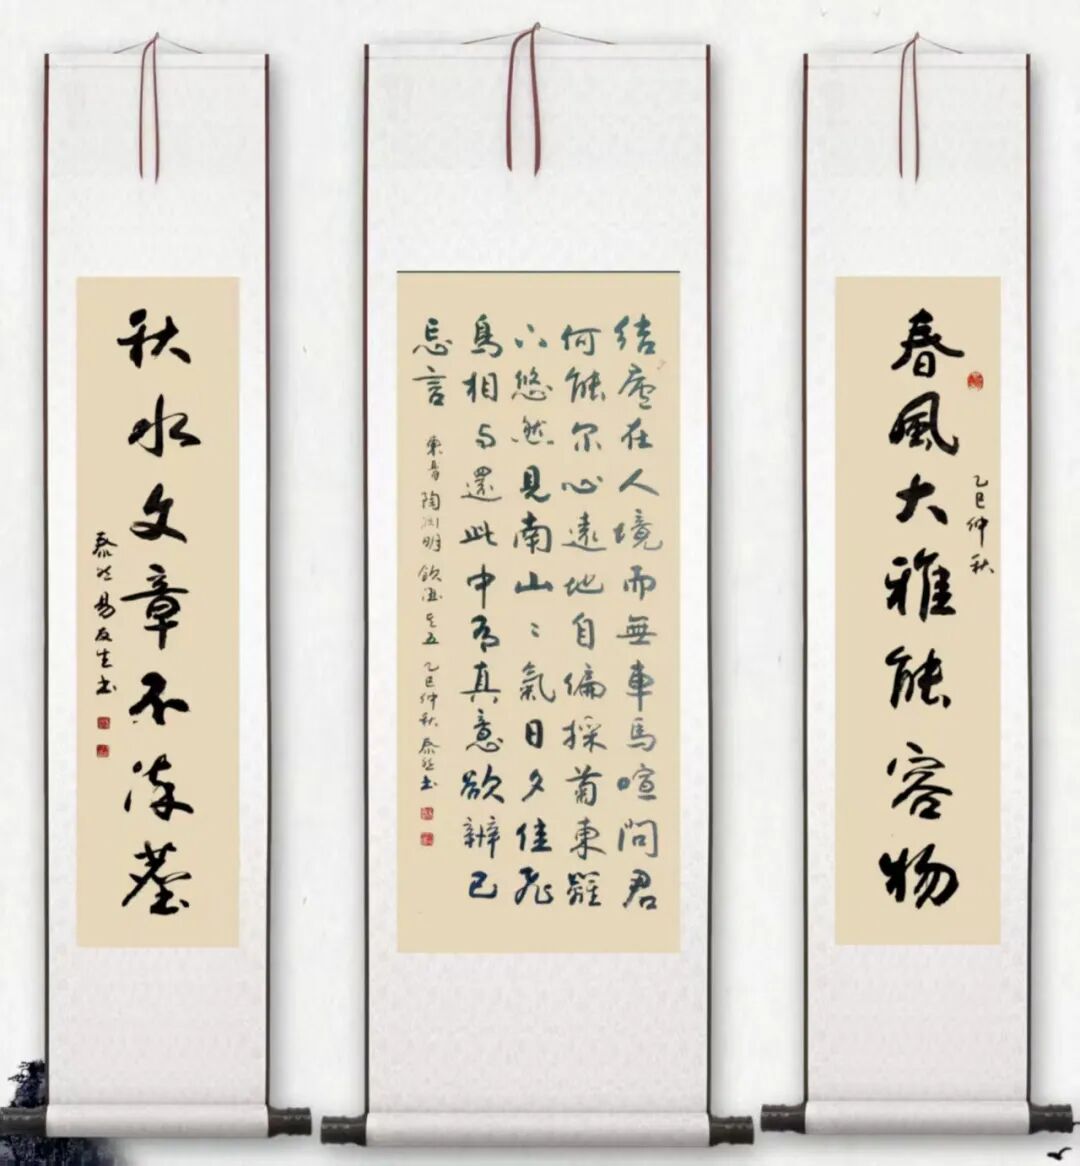 春風大雅能容物
乙巳仲秋
结廬在人境而無車馬喧問君
何能尔心遠地自偏採菊東籬
下悠然見南山〻氣日夕佳飛
鳥相与還此中有真意欲辨已
忘言
東晋陶渊明飲酒其五 乙巳仲秋泰然书
秋水文章不染塵
泰然易友生书